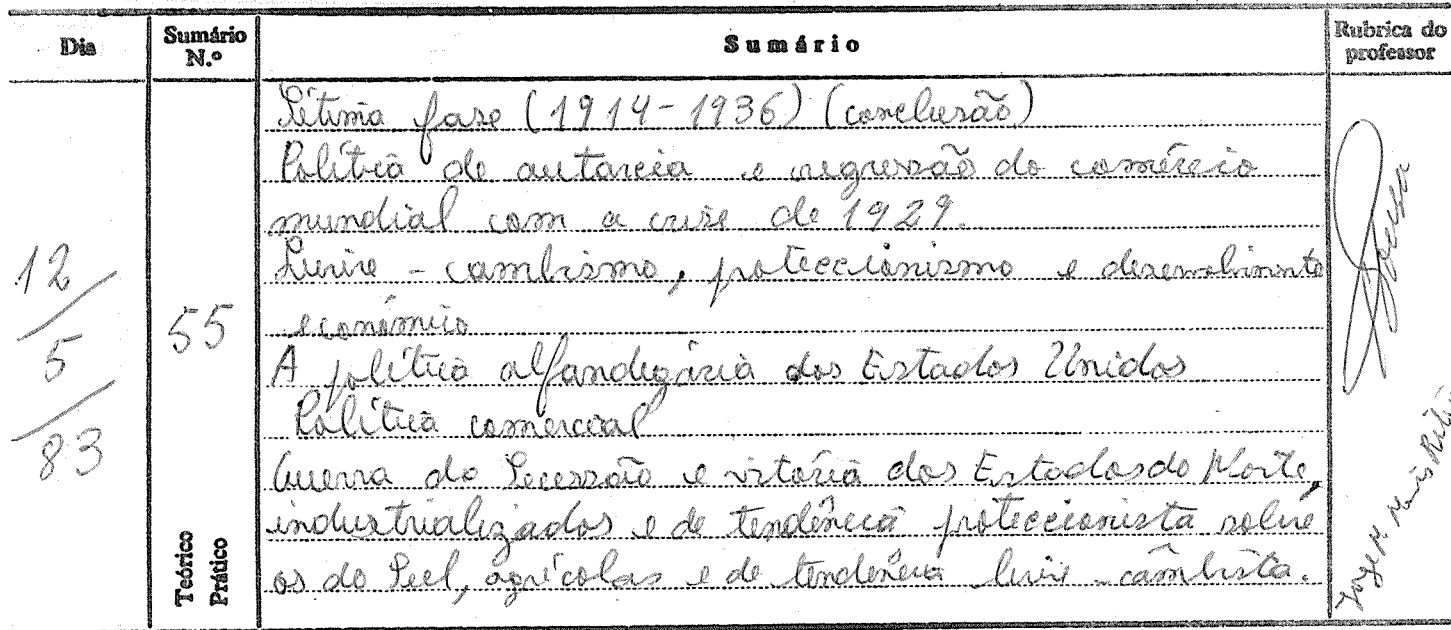 Dia
Sumário N.º
Sumário
Rubrica do professor
12/5/83
55
Teórico
Prático
Sétima fase (1914-1936) (conclusão)
Política de autarcia e regressão do comércio
mundial com a crise de 1929.
Livre-cambismo, proteccionismo e desenvolvimento
económico
A política alfandegária dos Estados Unidos
Política comercial
Guerra da Secessão e vitória dos Estados do Norte,
industrializados e de tendência proteccionista sobre
os do Sul, agrícolas e de tendência livre-cambista.